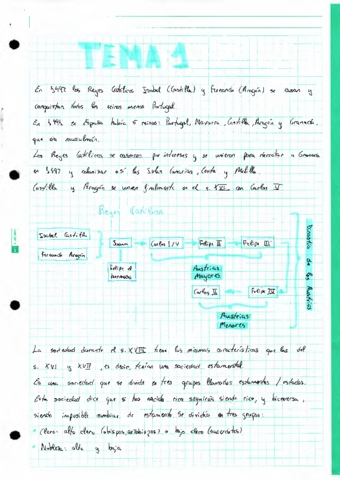 TEMA 1
En 1492 los Reyes Católicos Isabel (Castilla) y Fernando (Aragón) se casan y
conquistan todos los reinos menos Portugal.
En 1492 en España había 5 reinos: Portugal, Navarra, Castilla, Aragón y Granada,
que era musulmán.
Los Reyes Católicos se casaron por intereses y se unieron para derrotar a Granada
en 1492 y colonizar las Islas Canarias, Ceuta y Melilla
Castilla y Aragón se unen finalmente en el s. XVI con Carlos V
Reyes Católicos
Isabel Castilla
Fernando Aragón
Juana
Felipe el hermoso
Carlos I/V
Felipe II
Felipe III
Austrias Mayores
Carlos II
Felipe IV
Austrias Menores
Dinastía de los Austrias
La sociedad durante el s. XVIII tiene las mismas características que las del
s. XVI y XVII, es decir, tenían una sociedad estamental
Es una sociedad que se divide en tres grupos llamados estamentos / estados.
Esta sociedad dice que si has nacido rico seguirás siendo rico, y viceversa,
siendo imposible cambiar de estamento. Se dividía en tres grupos:
· Clero: alto clero (obispos, arzobispos) o bajo clero (sacerdotes)
· Nobleza: alta y baja